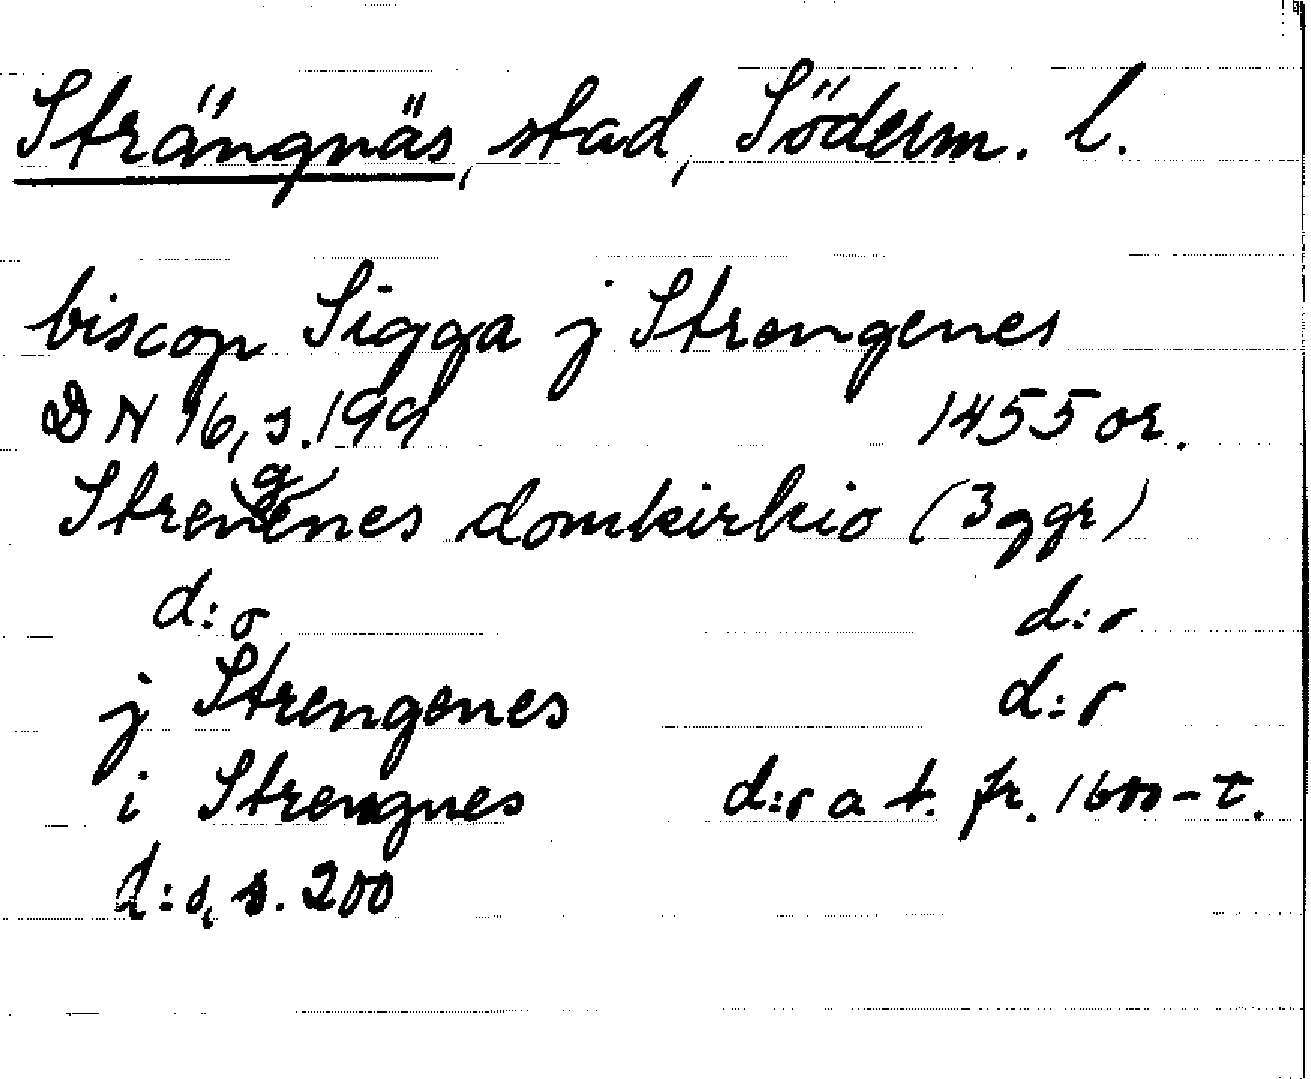 Strängnäs, stad, Söderm. l.
biscop Sigga j Strengenes
DN 16, s. 199 1455 or.
Strengenes domkirkio (3 ggr)
d:o d:o
j Strengenes d:o
i Strengnes d:o a t. fr. 1600-t.
d:o, s. 200